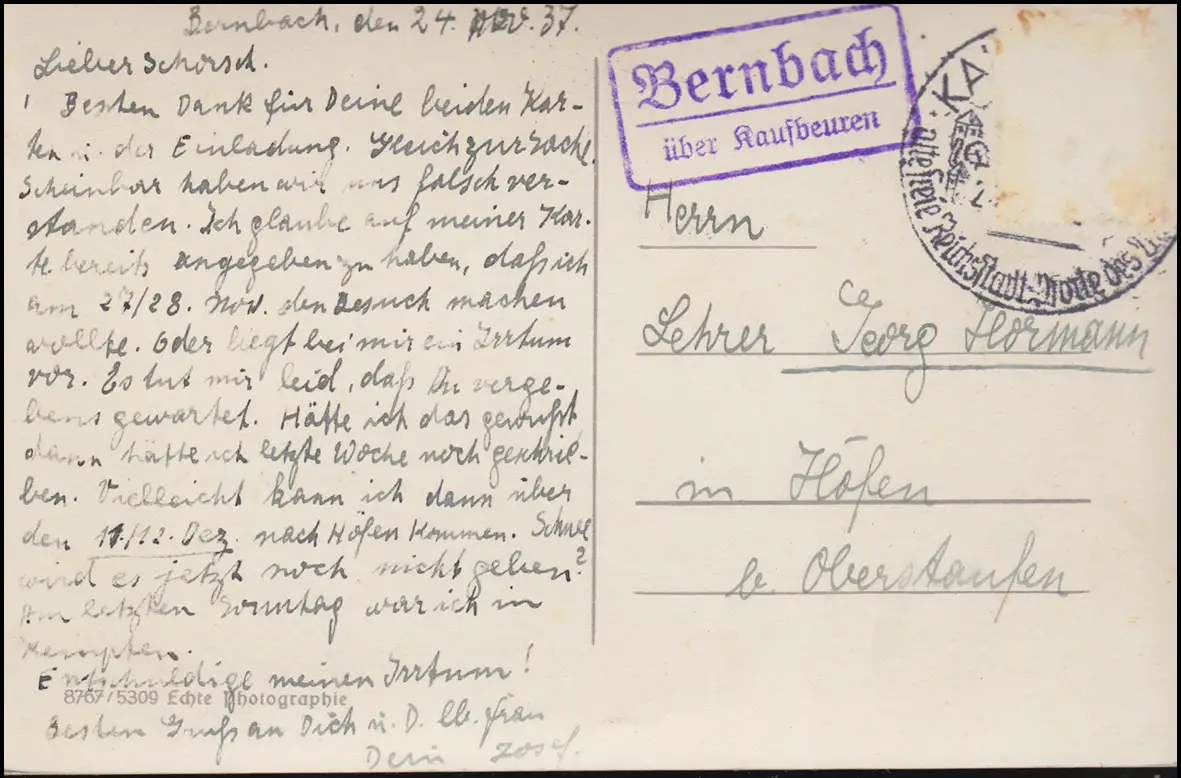 Bernbach, den 24. Nov. 37.
Lieber Schorsch.
Besten Dank für Deine beiden Kar-
ten u. der Einladung. Gleich zur Sache.
Scheinbar haben wir uns falsch ver-
standen. Ich glaube auf meiner Kar-
te bereits angegeben zu haben, daß ich
am 27/28. Nov. den Besuch machen
wollte. Oder liegt bei mir ein Irrtum
vor. Es tut mir leid, daß Du verge-
bens gewartet. Hätte ich das gewußt
dann hätte ich letzte Woche noch geschrie-
ben. Vielleicht kann ich dann über
den 11./12. Dez. nach Höfen kommen. Schnee
wird es jetzt noch nicht geben?
Am letzten Sonntag war ich in
Kempten.
Entschuldige meinen Irrtum!
8767/5309 Echte Photographie
Besten Gruß an Dich u. D. lb. Frau
Dein Josef.
Bernbach
über Kaufbeuren
KA
Alte freie Reichsstadt Pforte des
Herrn
Lehrer Georg Hormann
in Höfen
b. Oberstaufen